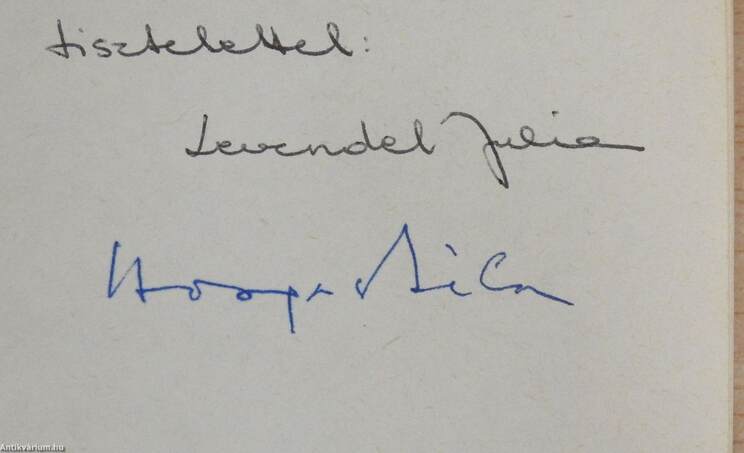 tisztelettel:
Levendel Julia
Horgas Béla
Antikvárium.hu